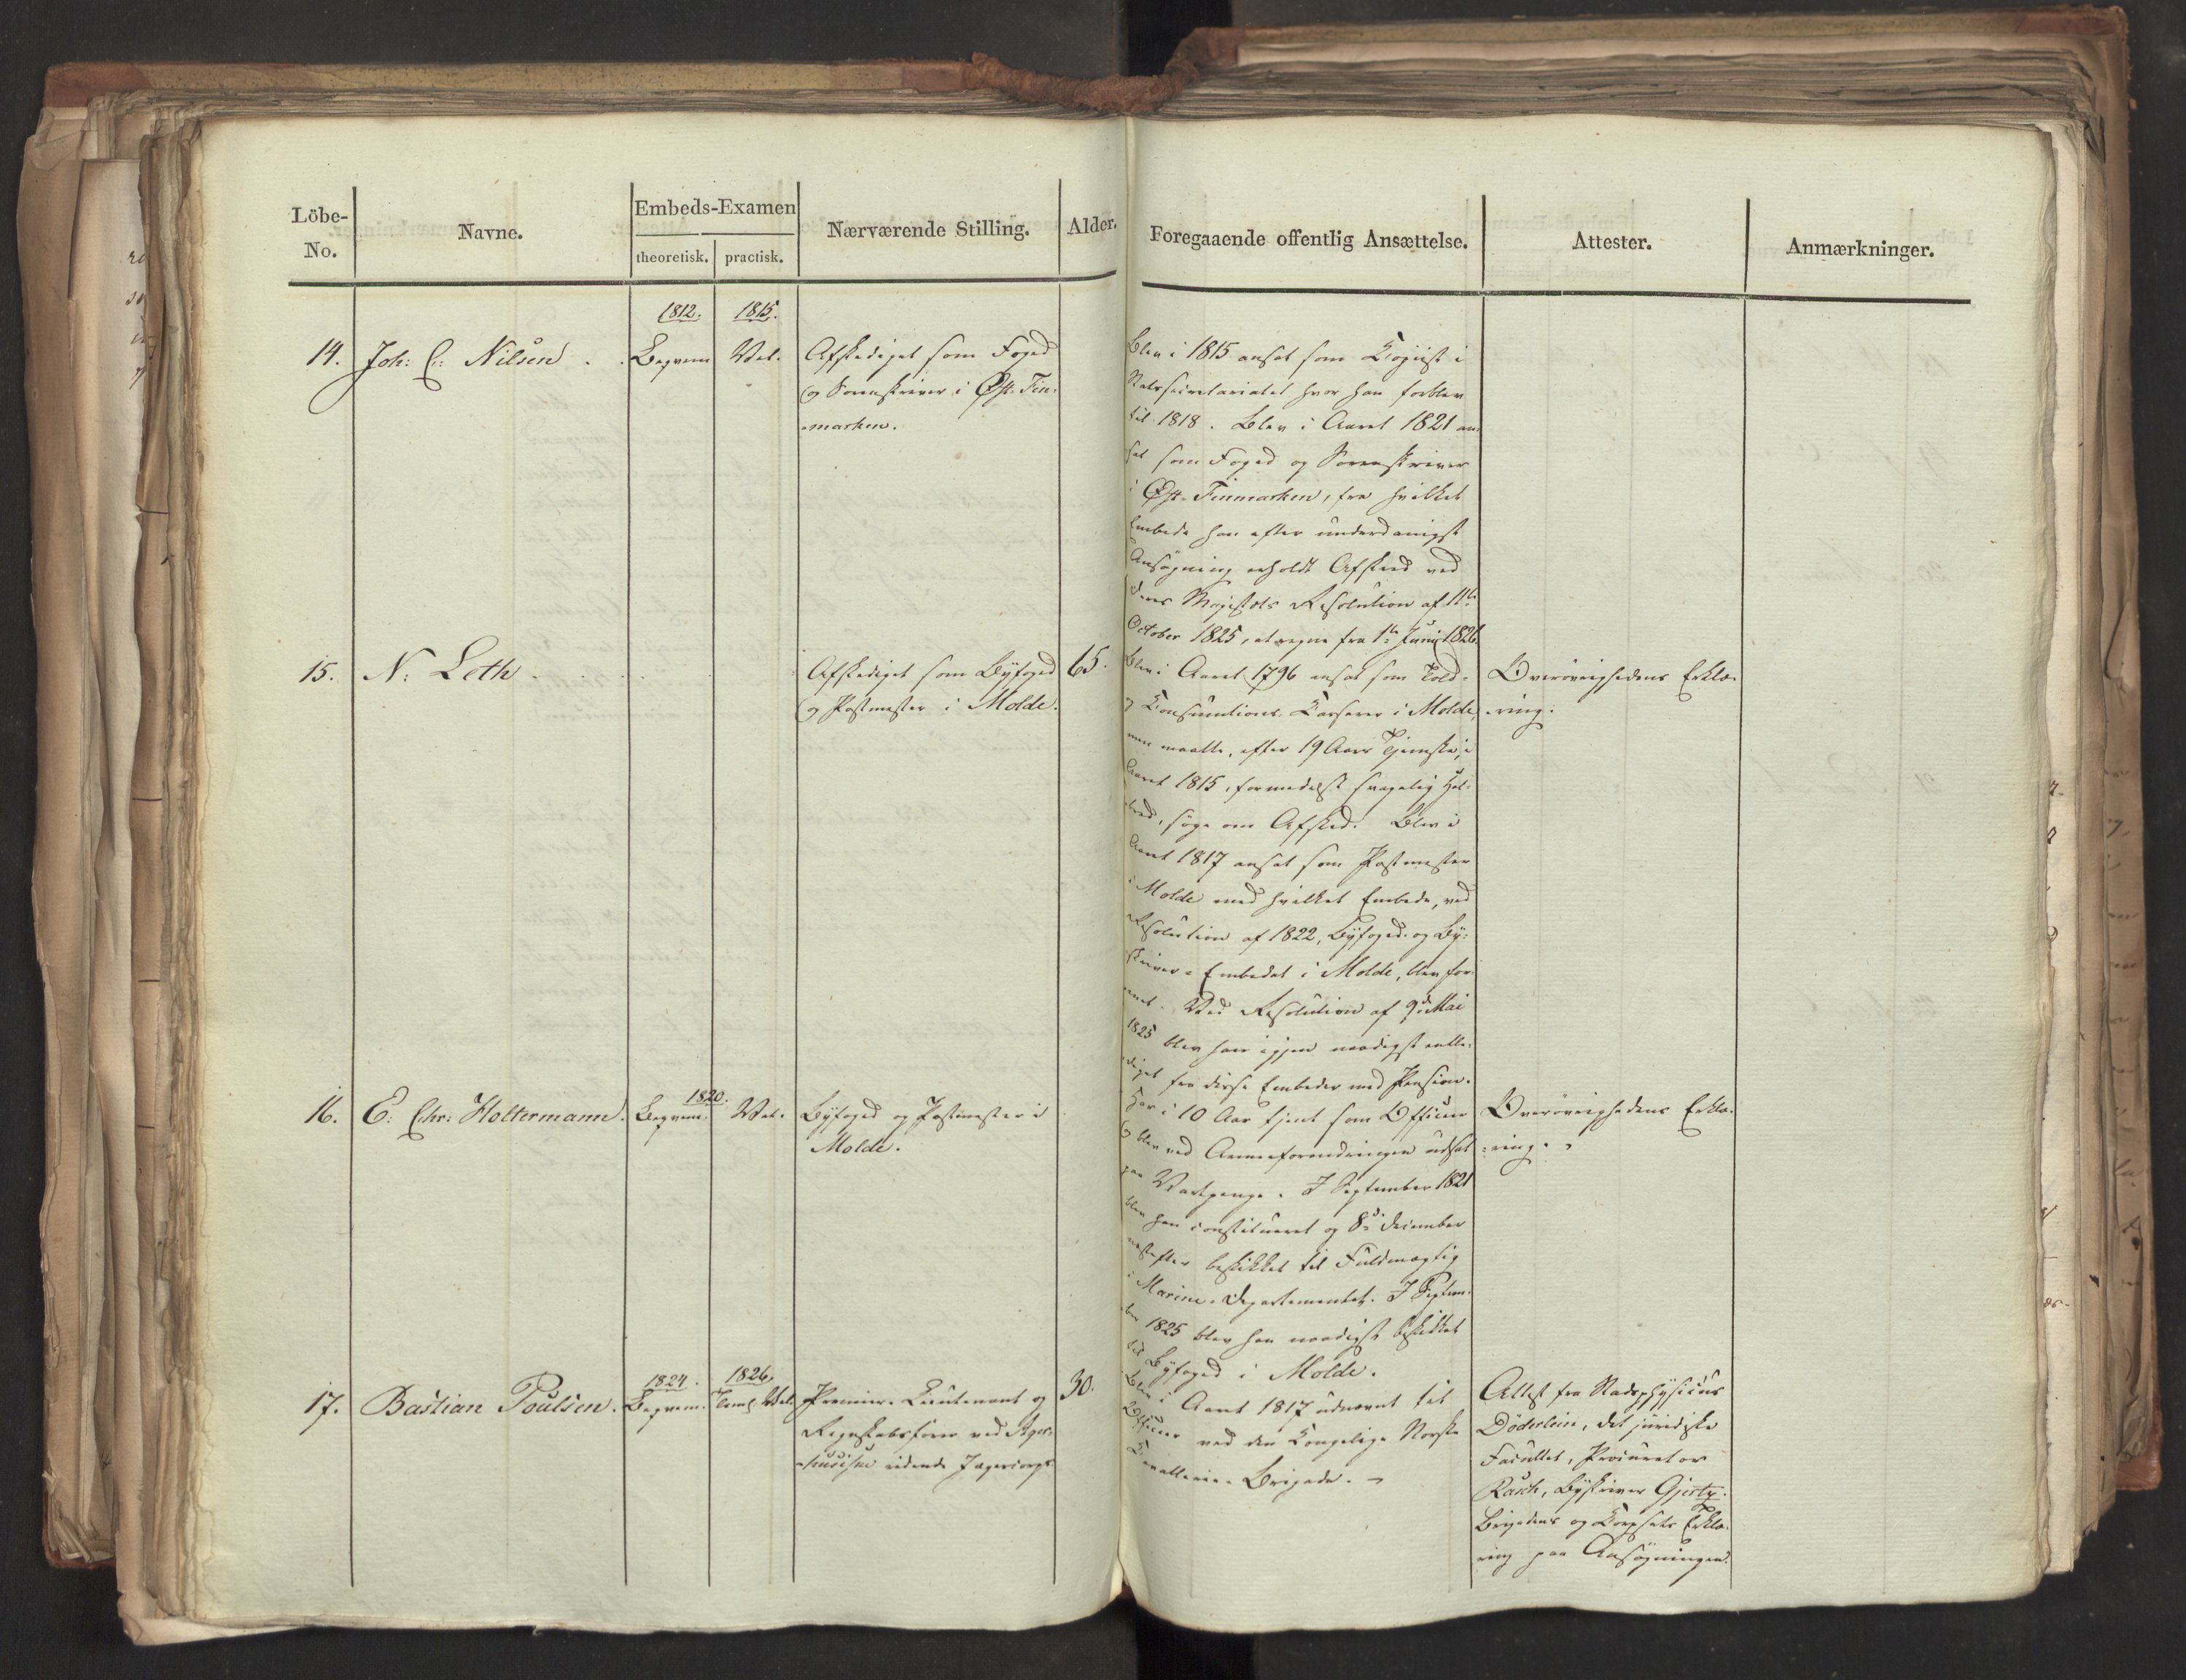 Löbe-
No.
Navne.
Embeds-Examen
theoretisk.
practisk.
Nærværende Stilling.
Alder.
Foregaaende offentlig Ansættelse.
Attester.
Anmærkninger.
1812.
1815.
14.
Joh: C: Nilsen
Beqvem
Vel.
Afskediget som Foged
og Sorenskriver i Øst-Fin-
marken.
Blev i 1815 ansat som Copiist i
Statssecretariatet hvor han forblev
til 1818. Blev i Aaret 1821 an-
sat som Foged og Sorenskriver
i Øst-Finmarken, fra hvilket
Embede han efter underdanigst
Ansøgning erholdt Afsked ved
Deres Majestæts Resolution af 11te
October 1825, at regne fra 1te Junii 1826.
15.
N: Leth
Afskediget som Byfoged
og Postmester i Molde.
65.
Blev i Aaret 1796 ansat som Told-
og Consumtions-Casserer i Molde,
men maatte, efter 19 Aars Tjeneste, i
Aaret 1815, formedelst svagelig Hel-
bred, søge om Afsked. Blev i
Aaret 1817 ansat som Postmester
i Molde med hvilket Embede, ved
Resolution af 1822, Byfoged- og By-
skriver-Embedet i Molde, blev for-
enet. Ved Resolution af 9de Mai
1825 blev han igjen naadigst entle-
diget fra disse Embeder med Pension.
Overøvrighedens Erklæ-
ring.
16.
E: Chr: Holtermann.
1820.
Beqvem.
Vel.
Byfoged og Postmester i
Molde.
Har i 10 Aar tjent som Officier
og blev ved Armeeforandringen udsat
paa Vartpenge. I September 1821
blev han constitueret og 8de December
næstefter beskikket til Fuldmægtig
i Marine-Departementet. I Septem-
ber 1825 blev han naadigst beskikket
til Byfoged i Molde.
Overøvrighedens Erklæ-
ring.
17.
Bastian Poulsen.
1824.
Beqvem.
1826.
Vel.
Premier-Lieutenant og
Regnskabsfører ved Ager-
huusiske ridende Jægercorps
30.
Blev i Aaret 1817 udnævnt til
Officier ved den Kongelige Norske
Cavallerie-Brigade.
Attest fra Stadsphysicus
Döderlein, det juridiske
Facultet, Procurator
Rasch, Byskriver
Brigadens og Corpsets Erklæ-
ring paa Ansøgningen.